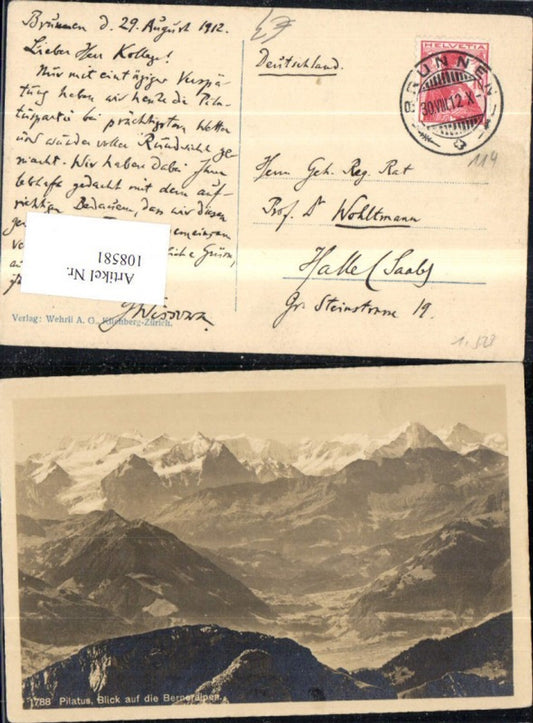 Brunnen d. 29. August 1912.
Lieber Herr Kollege!
Nur mit eintägiger Verspä-
tung haben wir heute die Pila-
tuspartie bei prächtigstem Wetter
und wundervoller Rundsicht ge-
macht. Wir haben dabei Ihrer
lebhaft gedacht mit dem auf-
richtigen Bedauern, dass wir diesen
Grüsse,
Verlag: Wehrli A. G., Kilchberg-Zürich.
Artikel Nr.
108581
Deutschland.
HELVETIA
BRUNNEN
30.VIII.12.X
114
Herrn Geh. Reg. Rat
Prof. Dr Wohltmann
Halle (Saale)
Gr. Steinstrasse 19.
1788 Pilatus, Blick auf die Berneralpen.